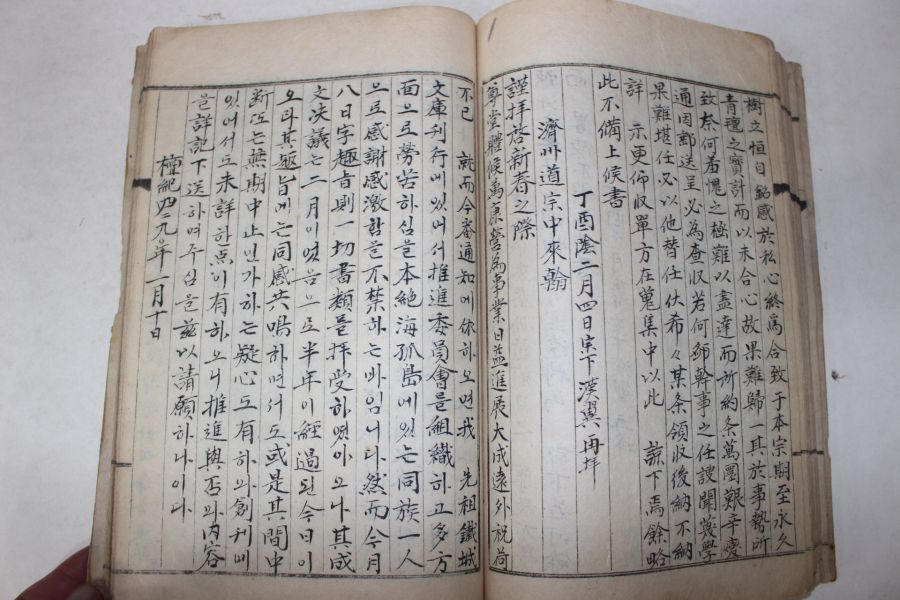 樹立恒日 銘感於私心終爲合致于本宗期至永久
青氈之寶計而以未合心故果難歸一其於事勢所
致奈何羞愧之極難以盡達而所約冬萬圜艱辛變
通因郵送呈必爲査收若何師幹事之任謏聞蔑學
果難堪任必以他替任伏希々某条領收後納不納
詳 示更仰收單方在蒐集中以此 諒下焉餘略
此不備上候書
丁酉陰二月四日宗下漢翼再拜
濟州道宗中來翰
謹拜啓新春之際
尊堂體候萬康營爲事業日益進展大成遠外祝荷
不已 就而今番通知에依하오면我 先祖鐵城
文庫刊行에있어서推進委員會를組織하고多方
面으로勞苦하심을本絶海孤島에있는同族一人
으로感謝感激함을不禁하는바임니다然而今月
八日字趣旨則一切書類를拜受하였아오나其成
文决議는二月이였음으로半年이經過된今日이
오라其趣旨에는同感共鳴하면서도或是其間中
断또는無期中止인가하는疑心도有하의創刊에
있어서도未詳한点이有하오니推進與否의内容
을詳記下送하며주심을玆以請願하나이다
檀紀四二九〇年一月十日